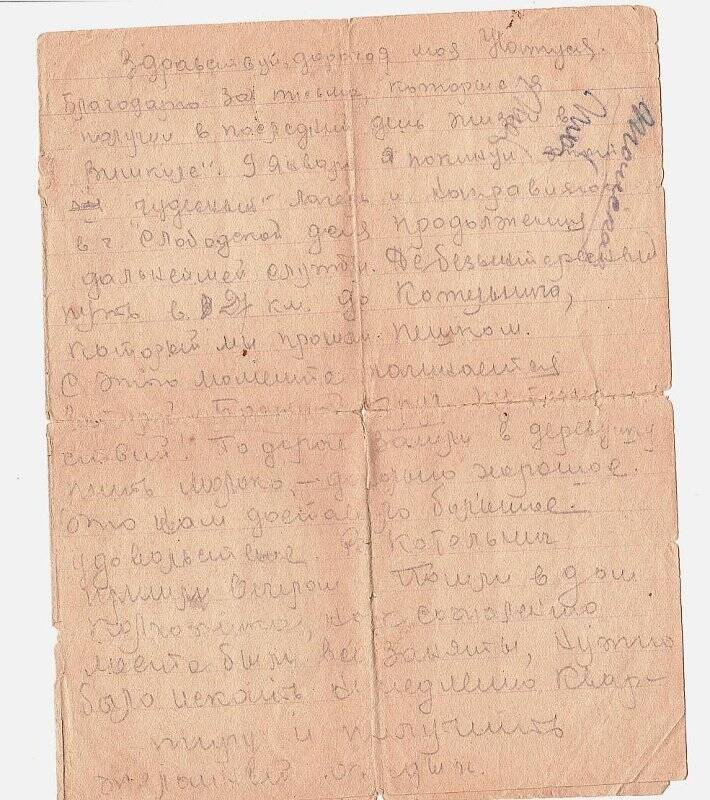 Здравствуй, дорогая моя Натуся!
Благодарю за письма, которые
получил в последний день жизни в
"Вишкиле". 9 января я покинул этот
"чудесный" лагерь и направился
в г. Слободской для продолжения
дальнейшей службы.
путь в 21 км. до Котельнича,
который мы прошли пешком.
С этого момента начинается
ствий! По дороге зашли в деревушку
пить молоко, – довольно хорошее.
Это нам доставило большое
удовольствие. В Котельнич
пришли вечером. Пошли в дом
колхозника, но к сожалению
места были все заняты, нужно
было искать немедленно квар-
тиру и получить